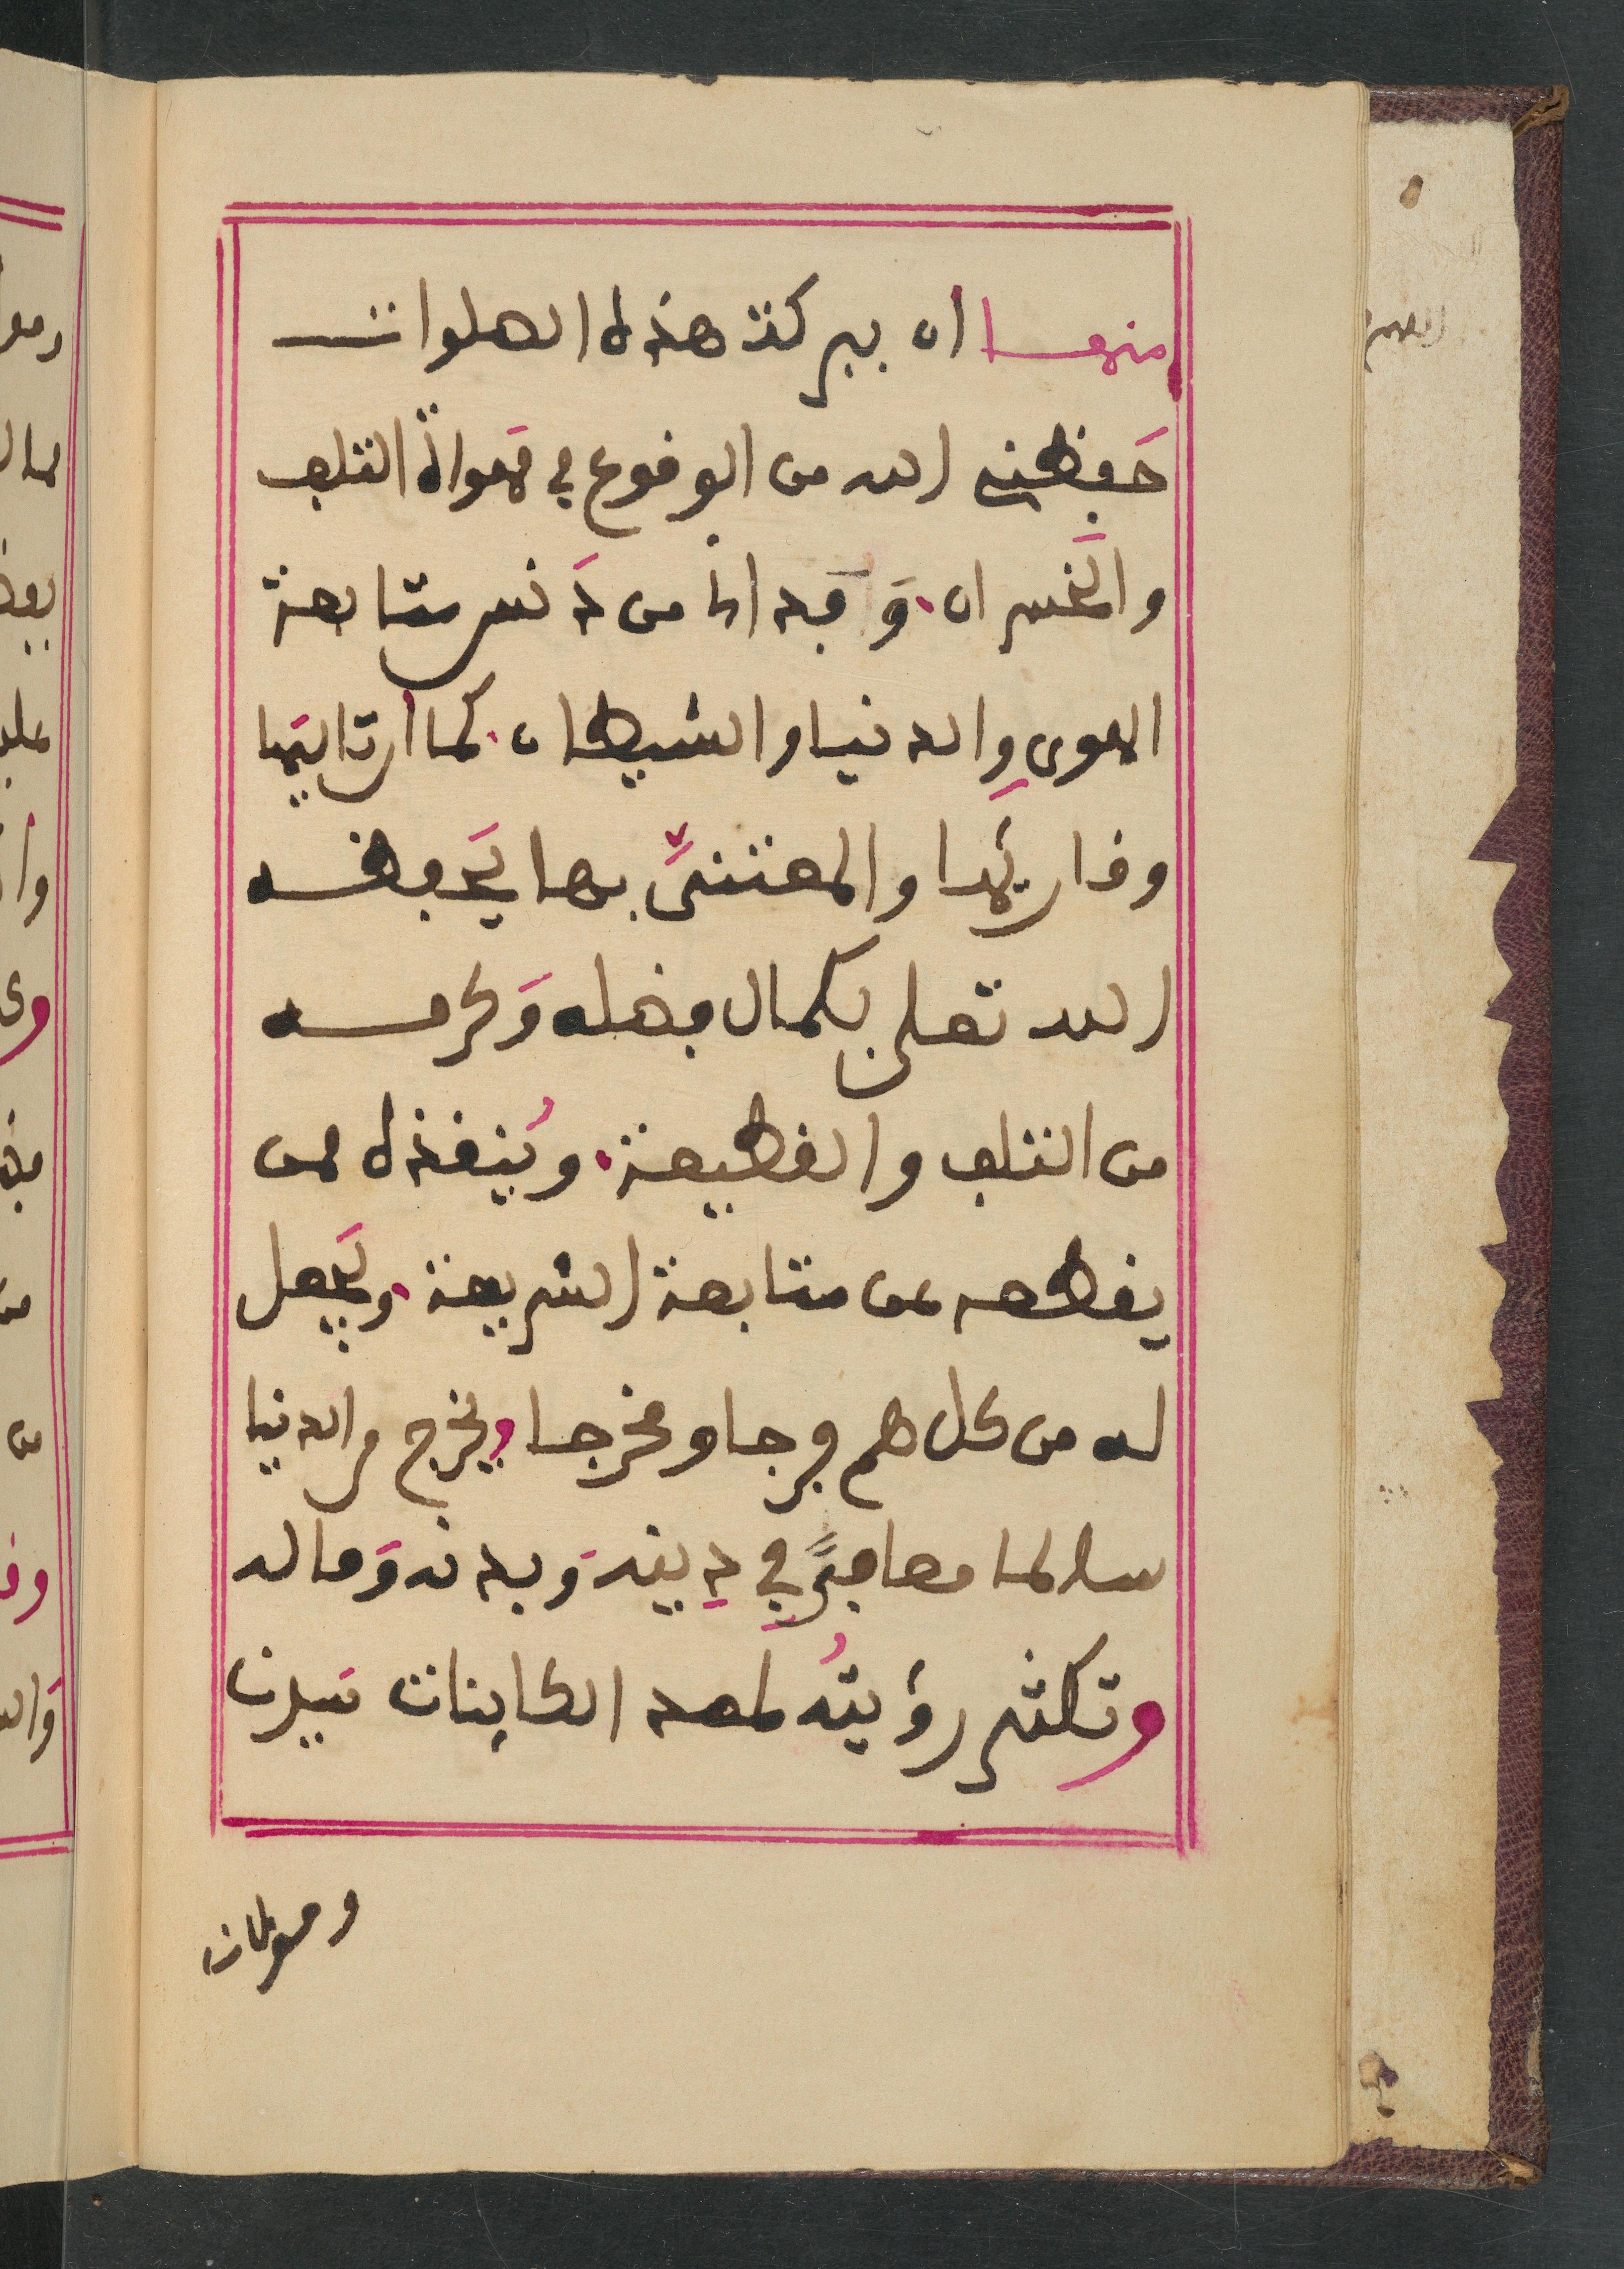 منها ان ببركة هذه الصلوات
حَفِظني الله من الوقوع في مَهواة التلف
والخَسران. وَقد انا من دَنس متابعة
الهوى وِالدنيا والشيطان. كما أن تاليَها
وقاريَها والمعتنيَّ بها يَحفظه
الله تعلى بكمال فضله وَكرمه
من التلف والقطيعة. ويُنقذه ممن
يقطعه عن متابعة الشريعة. ويَجعل
له من كل هم فرجا ومخرجا ويخرج من الدنيا
سالما معافىً في دِينه وَبدنه وَماله
وتكثر رؤيتُه لمعد الكاينات سَيدنا
ومولانا